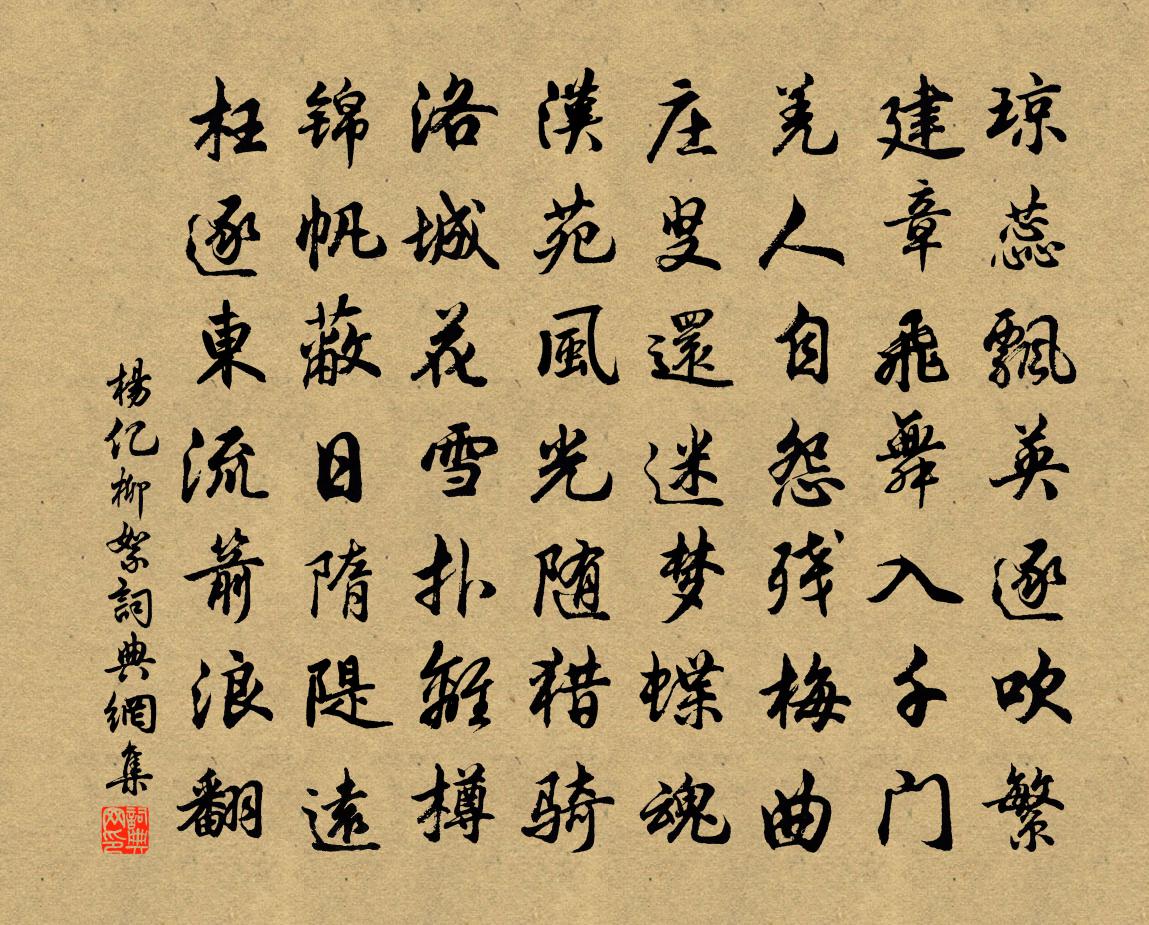 琼蕊飄英逐吹繁
建章飛舞入千门
羌人自怨残梅曲
庄叟還迷梦蝶魂
漢苑風光随猎骑
洛城花雪扑離樽
锦帆蔽日隋隄遠
枉逐東流箭浪翻
楊亿柳絮詞典網集
詞典网印